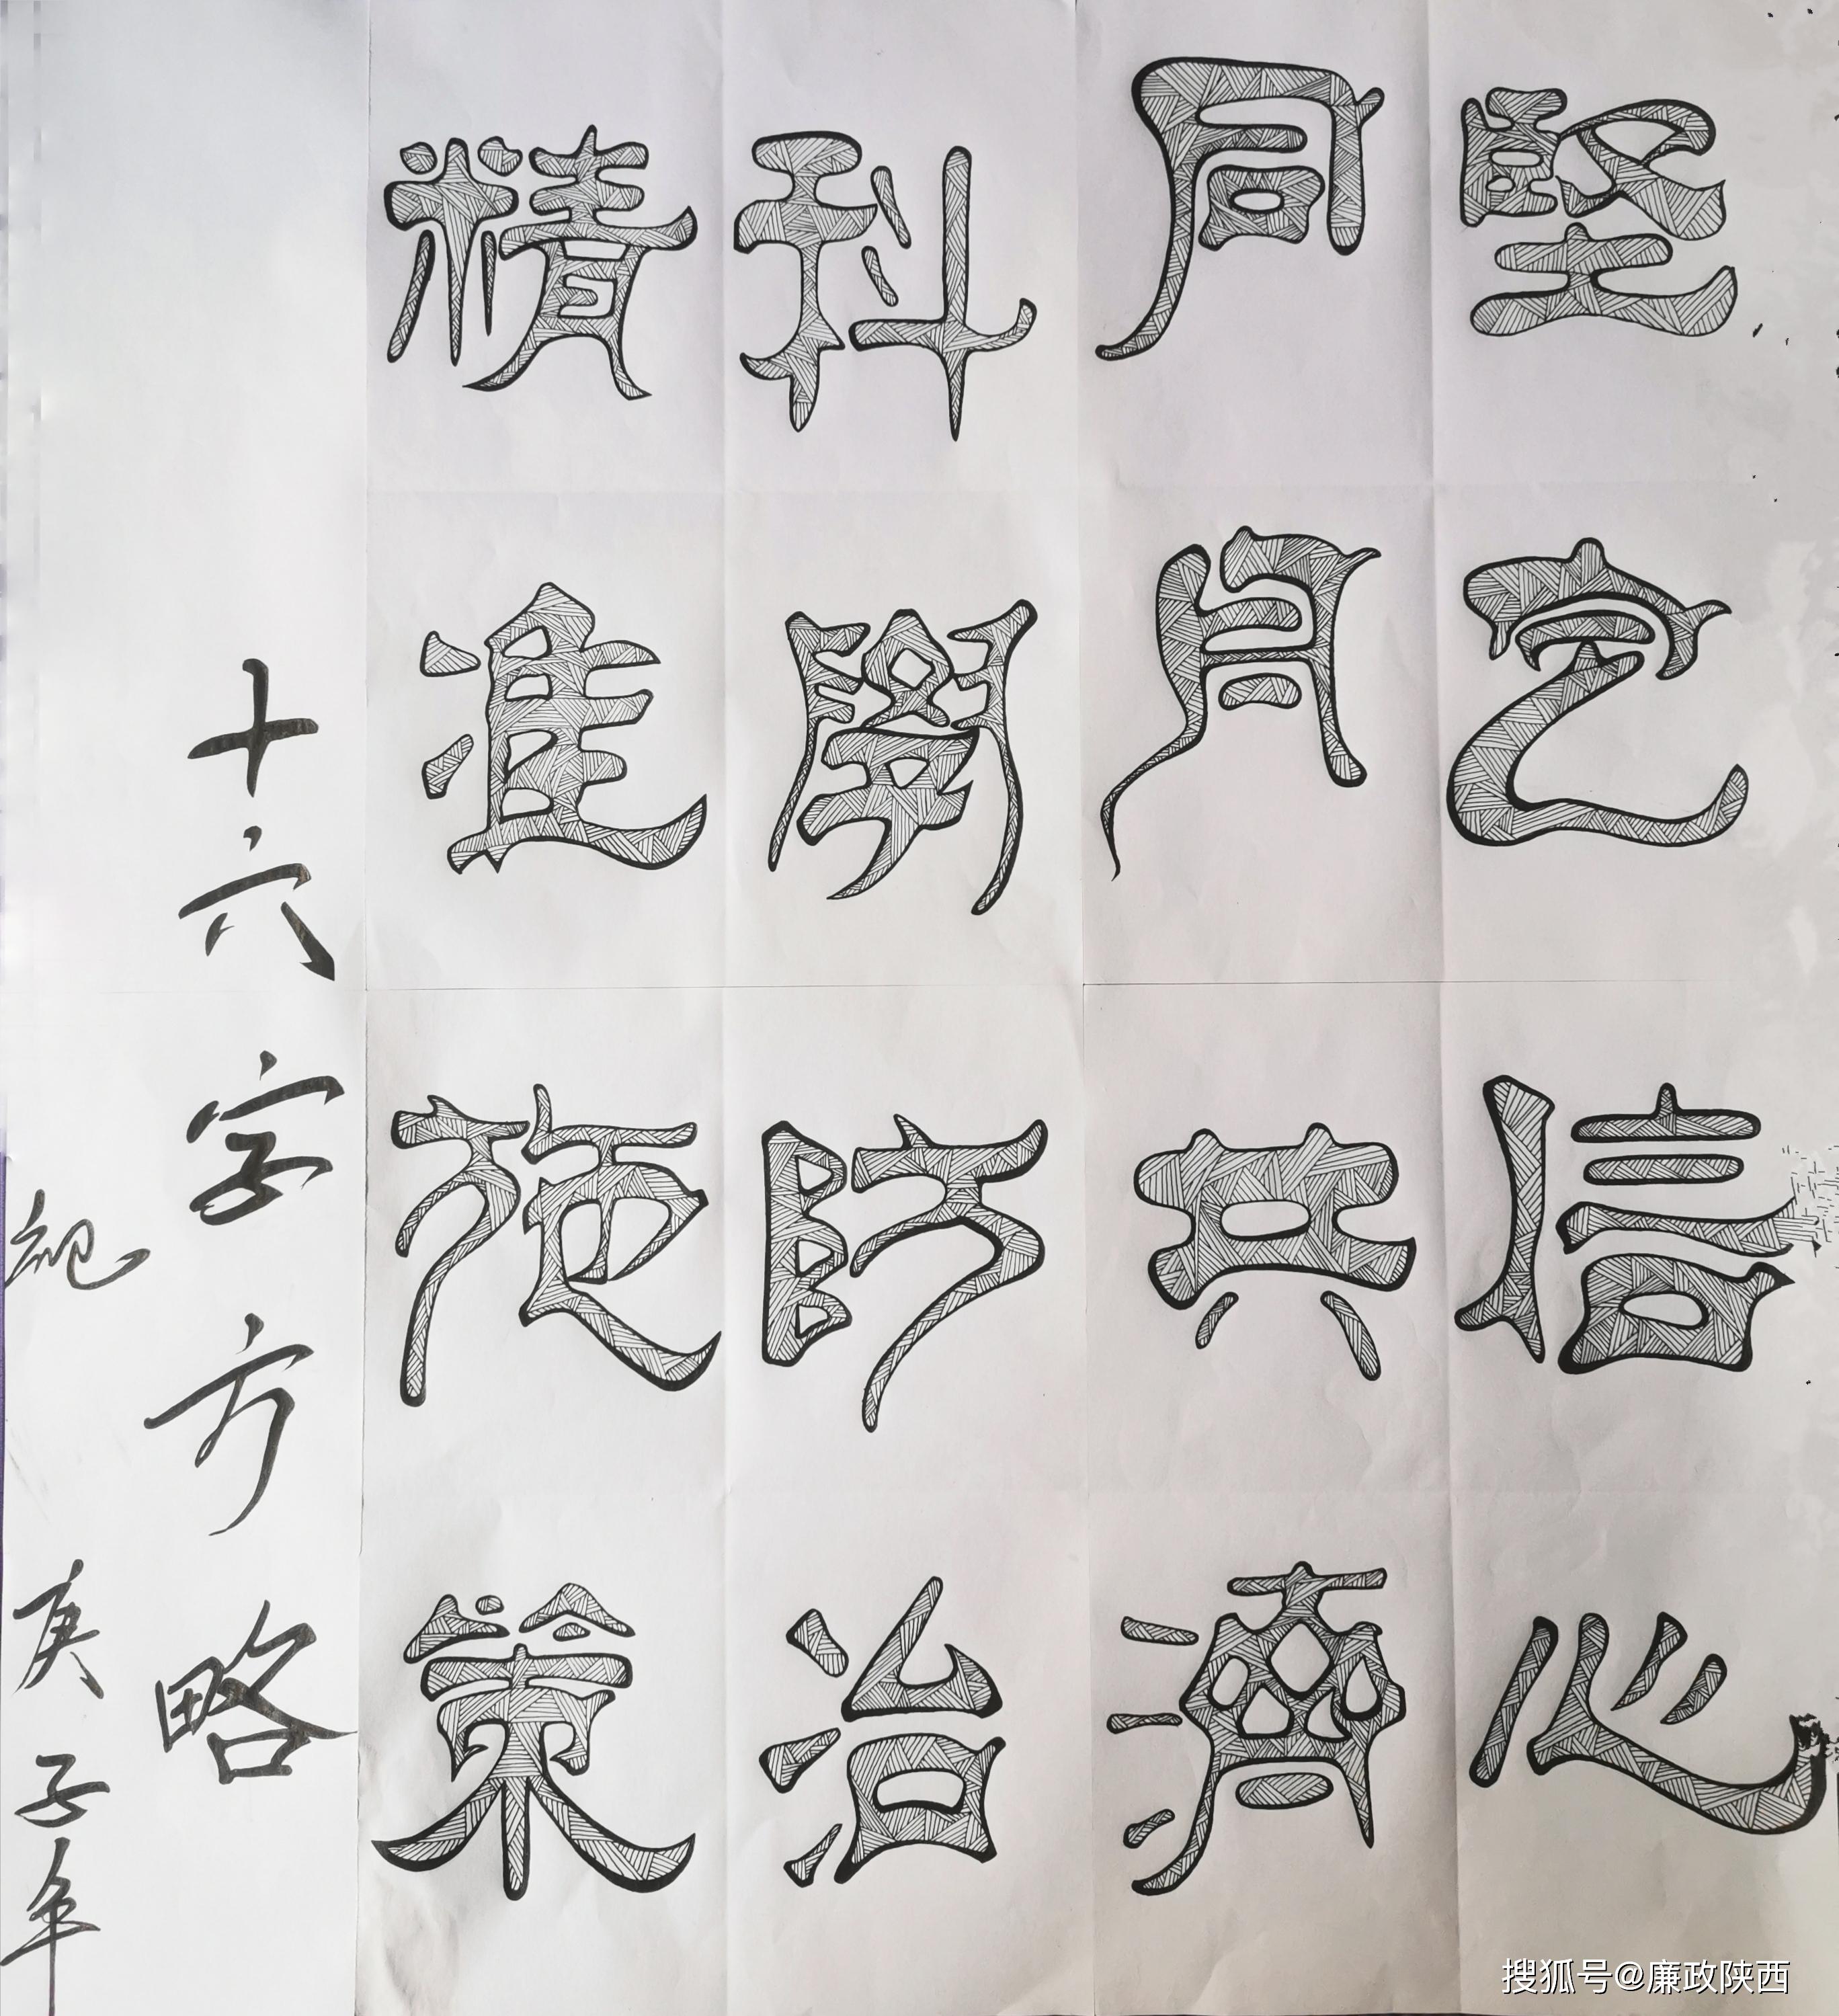 堅定信心
同舟共濟
科學防治
精准施策
十六字方略
庚子年
搜狐号@廉政陕西